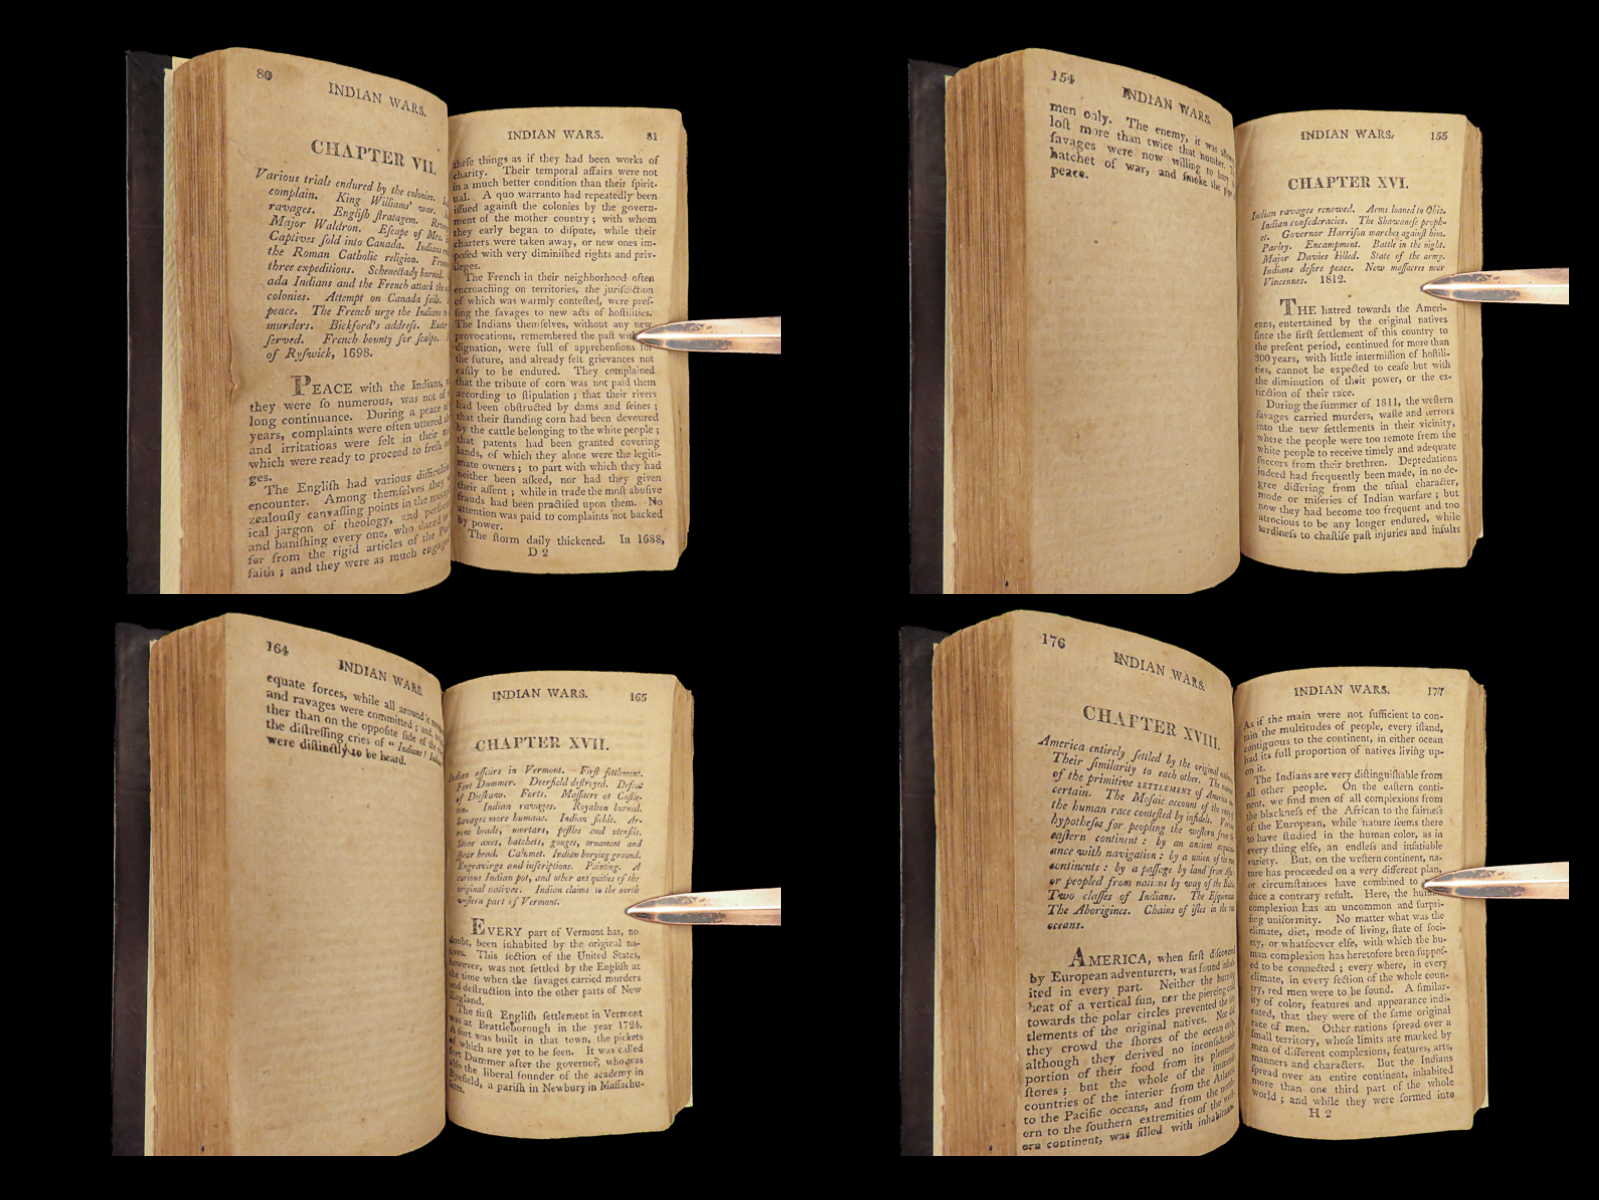 80
INDIAN WARS.
CHAPTER VII.
Various trials endured by the colonies.
complain. King Williams' war.
ravages. Engliſh ſtratagem.
Major Waldron. Eſcape of Mrs.
Captives ſold into Canada. Indians
the Roman Catholic religion.
three expeditions. Schenectady burned.
ada Indians and the French attack the
colonies. Attempt on Canada fails.
peace. The French urge the Indians to
murders. Bickford's addreſs.
ſerved. French bounty for ſcalps.
of Ryſwick, 1698.
PEACE with the Indians,
they were ſo numerous, was not of
long continuance. During a peace of
years, complaints were often uttered
and irritations were felt in their
which were ready to proceed to freſh
ges.
The Engliſh had various difficulties
encounter. Among themſelves they
zealouſly canvaſſing points in the
ical jargon of theology, and
and baniſhing every one, who dared
far from the rigid articles of the
faith ; and they were as much engaged
INDIAN WARS. 81
theſe things as if they had been works of
charity. Their temporal affairs were not
in a much better condition than their ſpirit-
ual. A quo warranto had repeatedly been
iſſued againſt the colonies by the govern-
ment of the mother country ; with whom
they early began to diſpute, while their
charters were taken away, or new ones im-
poſed with very diminiſhed rights and priv-
ileges.
The French in their neighborhood often
encroaching on territories, the juriſdiction
of which was warmly conteſted, were preſ-
ſing the ſavages to new acts of hoſtilities.
The Indians themſelves, without any new
provocations, remembered the paſt with
dignation, were full of apprehenſions for
the future, and already felt grievances not
eaſily to be endured. They complained
that the tribute of corn was not paid them
according to ſtipulation ; that their rivers
had been obſtructed by dams and ſeines ;
that their ſtanding corn had been devoured
by the cattle belonging to the white people ;
that patents had been granted covering
lands, of which they alone were the legiti-
mate owners ; to part with which they had
neither been aſked, nor had they given
their aſſent ; while in trade the moſt abuſive
frauds had been practiſed upon them. No
attention was paid to complaints not backed
by power.
The ſtorm daily thickened. In 1688,
D 2
154
INDIAN WARS.
men only. The enemy, it was
loſt more than twice that number.
ſavages were now willing to bury
hatchet of war, and ſmoke the pipe
peace.
INDIAN WARS. 155
CHAPTER XVI.
Indian ravages renewed. Arms loaned to Ohio.
Indian confederacies. The Shawaneſe proph-
et. Governor Harriſon marches againſt him.
Parley. Encampment. Battle in the night.
Major Davies killed. State of the army.
Indians deſire peace. New maſſacres near
Vincennes. 1812.
THE hatred towards the Ameri-
cans, entertained by the original natives
ſince the firſt ſettlement of this country to
the preſent period, continued for more than
300 years, with little intermiſſion of hoſtili-
ties, cannot be expected to ceaſe but with
the diminution of their power, or the ex-
tinction of their race.
During the ſummer of 1811, the weſtern
ſavages carried murders, waſte and terrors
into the new ſettlements in their vicinity,
where the people were too remote from the
white people to receive timely and adequate
ſuccors from their brethren. Depredations
indeed had frequently been made, in no de-
gree differing from the uſual character,
mode or miſeries of Indian warfare ; but
now they had become too frequent and too
atrocious to be any longer endured, while
tardineſs to chaſtiſe paſt injuries and inſults
164
INDIAN WARS.
equate forces, while all around
and ravages were committed ; and,
ther than on the oppoſite ſide of the
the diſtreſſing cries of " Indians !
were diſtinctly to be heard.
INDIAN WARS. 165
CHAPTER XVII.
Indian affairs in Vermont. Firſt ſettlement.
Fort Dummer. Deerfield deſtroyed. Defeat
of Dieſkaw. Forts. Maſſacre at Caſtle-
ton. Indian ravages. Royalton burned.
Savages more humane. Indian fields. Ar-
row heads, mortars, peſtles and utenſils.
Stone axes, hatchets, gouges, ornament and
ſpear head. Calumet. Indian burying ground.
Engravings and inſcriptions. Painting. A
curious Indian pot, and other antiquities of the
original natives. Indian claims to the north
weſtern part of Vermont.
EVERY part of Vermont has, no
doubt, been inhabited by the original na-
tives. This ſection of the United States,
however, was not ſettled by the Engliſh at
the time when the ſavages carried murders
and deſtruction into the other parts of New
England.
The firſt Engliſh ſettlement in Vermont
was at Brattleborough in the year 1724.
A fort was built in that town, the pickets
of which are yet to be ſeen. It was called
fort Dummer after the governor, who was
alſo the liberal founder of the academy in
Byefield, a pariſh in Newbury in Maſſachu-
ſetts.
176
INDIAN WARS.
CHAPTER XVIII.
America entirely ſettled by the original natives.
Their ſimilarity to each other. The
of the primitive SETTLEMENT of America
certain. The Moſaic account of the
the human race conteſted by infidels.
hypotheſes for peopling the weſtern from the
eaſtern continent : by an ancient
ance with navigation : by a union of the two
continents : by a paſſage by land from
or peopled from nations by way of the
Two claſſes of Indians. The
The Aborigines. Chains of iſles in the two
oceans.
AMERICA, when firſt diſcovered
by European adventurers, was found inhab-
ited in every part. Neither the burning
heat of a vertical ſun, nor the piercing cold
towards the polar circles prevented the ſet-
tlements of the original natives. Nor did
they crowd the ſhores of the ocean only,
although they derived no inconſiderable
portion of their food from its plenteous
ſtores ; but the whole of the immenſe
countries of the interior from the Atlantic
to the Pacific oceans, and from the north-
ern to the ſouthern extremities of the weſt-
ern continent, was filled with inhabitants,
INDIAN WARS. 177
As if the main were not ſufficient to con-
tain the multitudes of people, every iſland,
contiguous to the continent, in either ocean
had its full proportion of natives living up-
on it.
The Indians are very diſtinguiſhable from
all other people. On the eaſtern conti-
nent, we find men of all complexions from
the blackneſs of the African to the fairneſs
of the European, while nature ſeems there
to have ſtudied in the human color, as in
every thing elſe, an endleſs and inſatiable
variety. But, on the weſtern continent, na-
ture has proceeded on a very different plan,
or circumſtances have combined to
duce a contrary reſult. Here, the human
complexion has an uncommon and ſurpri-
ſing uniformity. No matter what was the
climate, diet, mode of living, ſtate of ſoci-
ety, or whatſoever elſe, with which the hu-
man complexion has heretofore been ſuppoſ-
ed to be connected ; every where, in every
climate, in every ſection of the whole coun-
try, red men were to be found. A ſimilar-
ity of color, features and appearance indi-
cated, that they were of the ſame original
race of men. Other nations ſpread over a
ſmall territory, whoſe limits are marked by
men of different complexions, features, arts,
manners and characters. But the Indians
ſpread over an entire continent, inhabited
more than one third part of the whole
world ; and while they were formed into
H 2